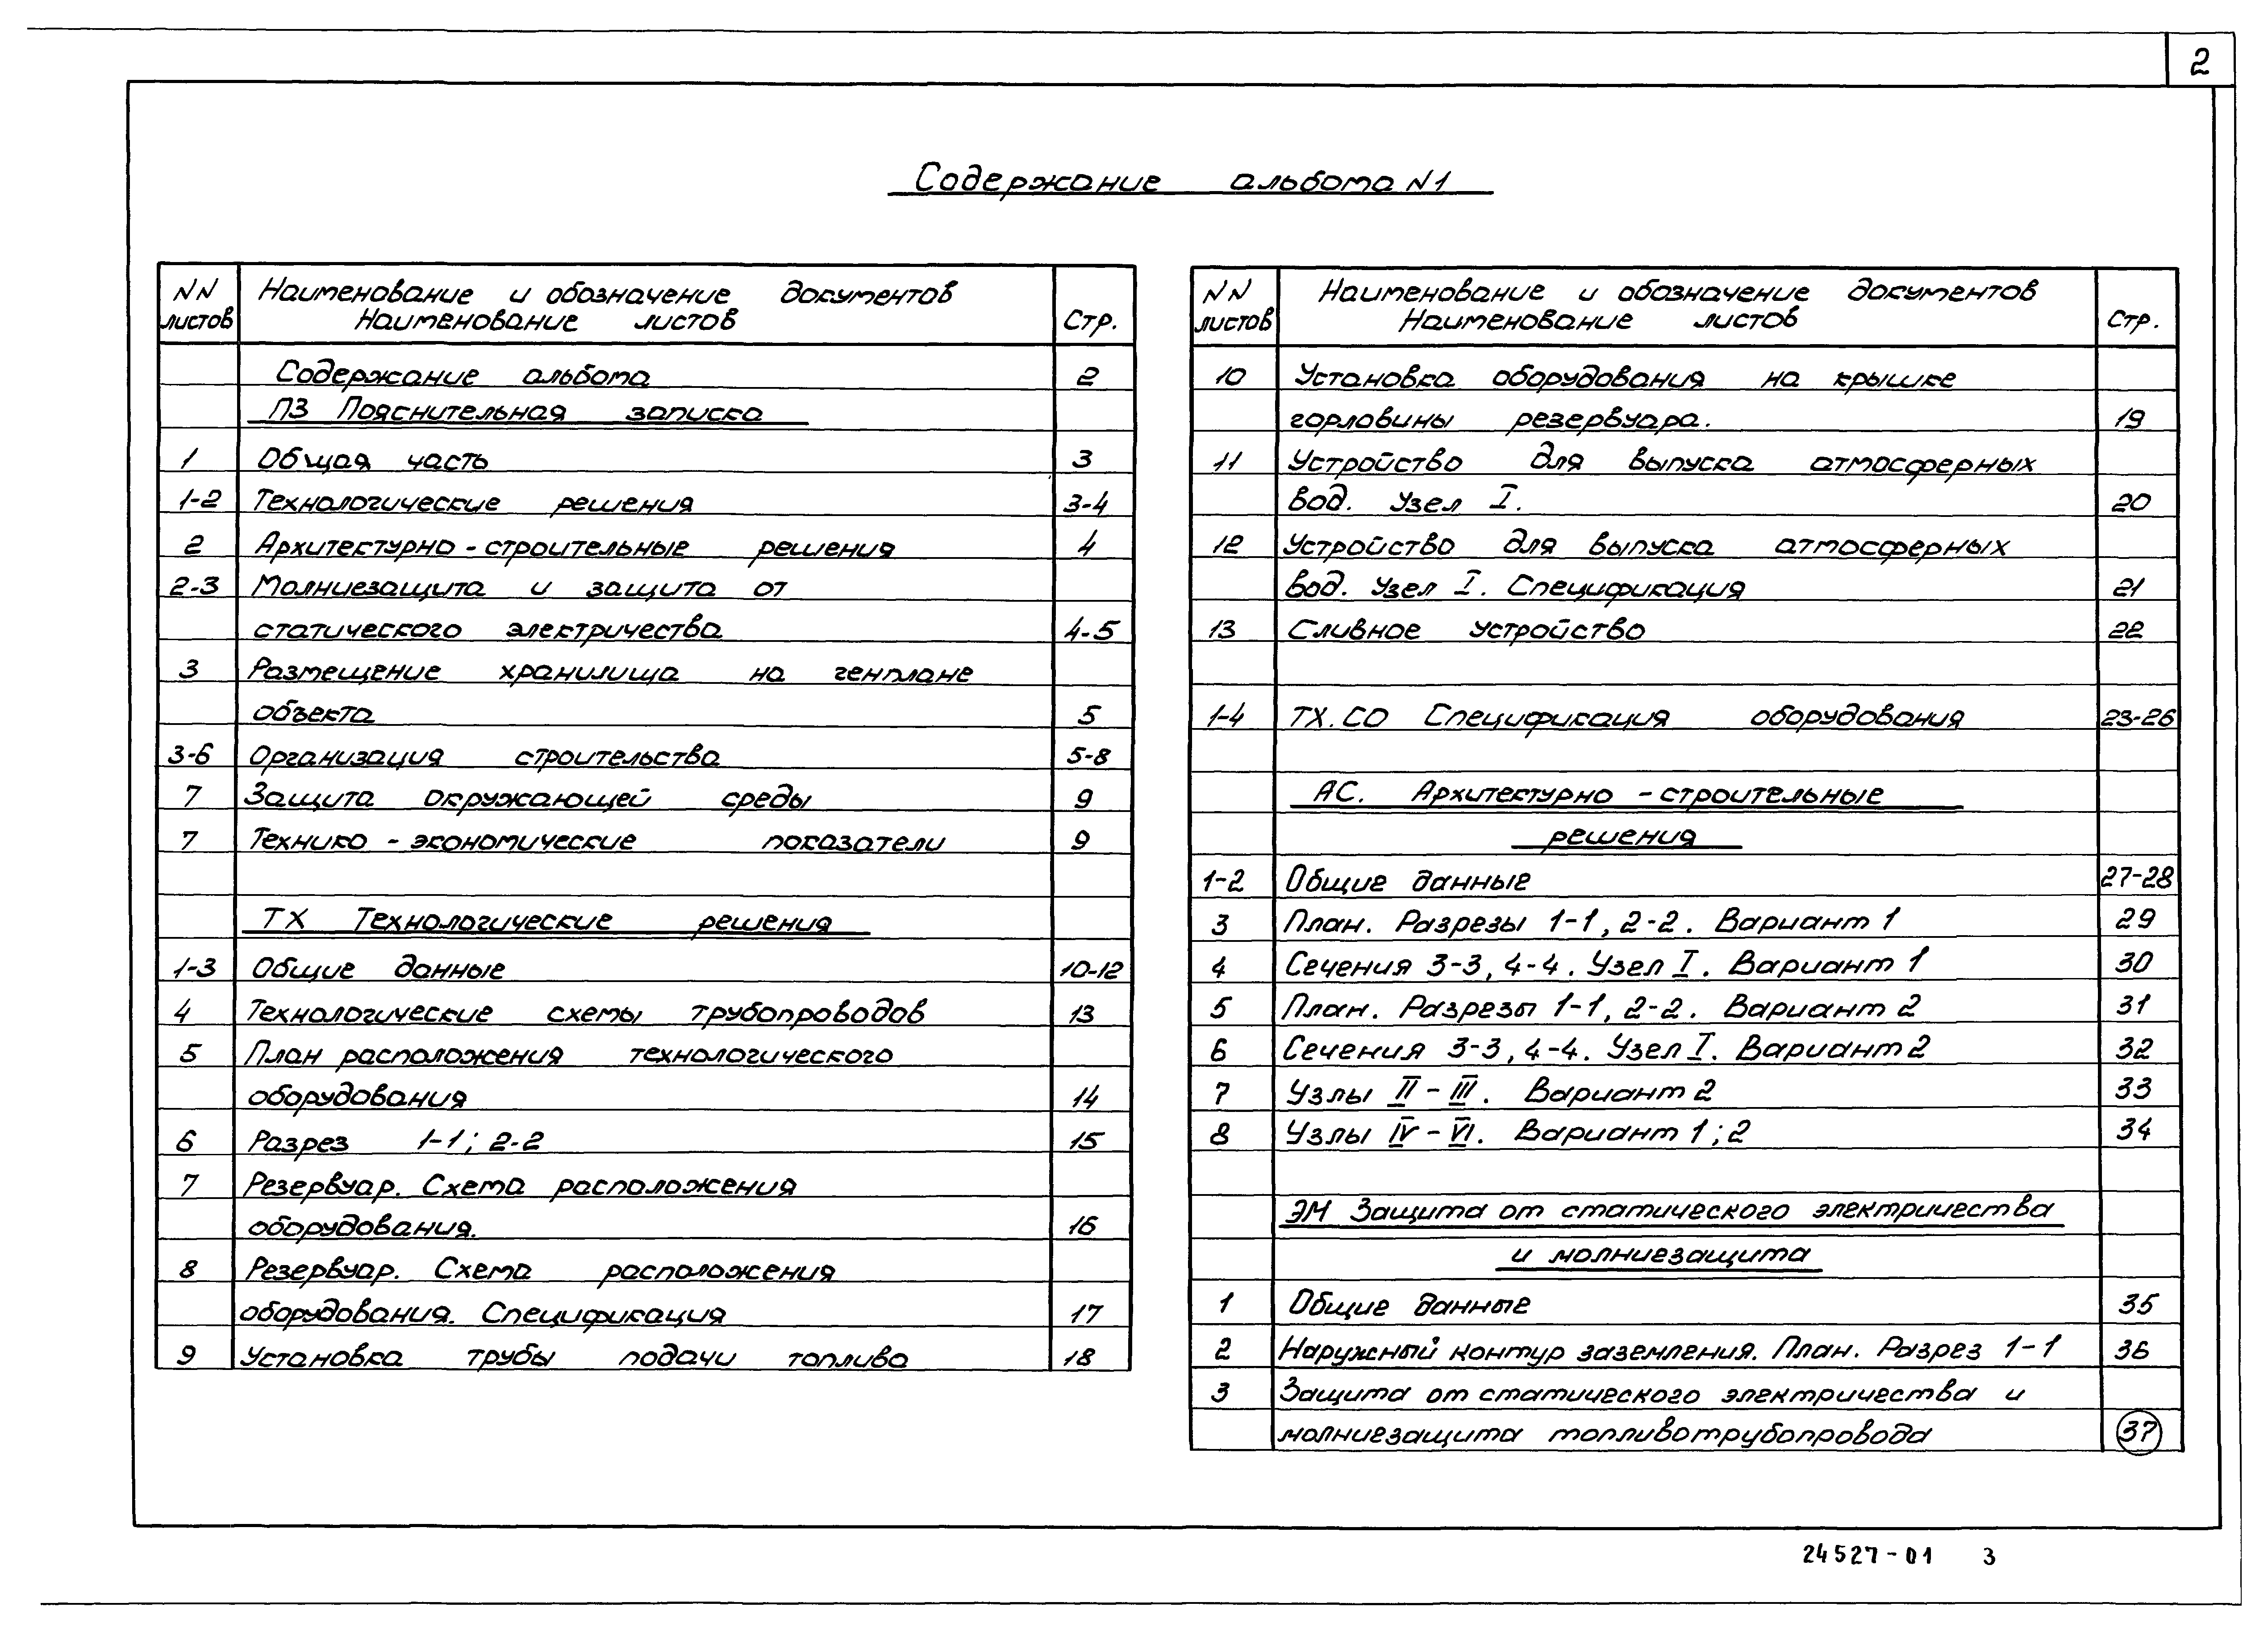 2
Содержание альбома N1
NN листов Наименование и обозначение документов Наименование листов Стр.
Содержание альбома 2
ПЗ Пояснительная записка
1 Общая часть 3
1-2 Технологические решения 3-4
2 Архитектурно-строительные решения 4
2-3 Молниезащита и защита от
статического электричества 4-5
3 Размещение хранилища на генплане
объекта 5
3-6 Организация строительства 5-8
7 Защита окружающей среды 9
7 Технико-экономические показатели 9
ТХ Технологические решения
1-3 Общие данные 10-12
4 Технологические схемы трубопроводов 13
5 План расположения технологического
оборудования 14
6 Разрез 1-1; 2-2 15
7 Резервуар. Схема расположения
оборудования. 16
8 Резервуар. Схема расположения
оборудования. Спецификация 17
9 Установка трубы подачи топлива 18
NN листов Наименование и обозначение документов Наименование листов Стр.
10 Установка оборудования на крышке
горловины резервуара. 19
11 Устройство для выпуска атмосферных
вод. Узел I. 20
12 Устройство для выпуска атмосферных
вод. Узел I. Спецификация 21
13 Сливное устройство 22
1-4 ТХ.СО Спецификация оборудования 23-26
АС. Архитектурно-строительные
решения
1-2 Общие данные 27-28
3 План. Разрезы 1-1, 2-2. Вариант 1 29
4 Сечения 3-3, 4-4. Узел I. Вариант 1 30
5 План. Разрезы 1-1, 2-2. Вариант 2 31
6 Сечения 3-3, 4-4. Узел I. Вариант 2 32
7 Узлы II-III. Вариант 2 33
8 Узлы IV-VI. Вариант 1; 2 34
ЭМ Защита от статического электричества
и молниезащита
1 Общие данные 35
2 Наружный контур заземления. План. Разрез 1-1 36
3 Защита от статического электричества и
молниезащита топливотрубопровода 37
24527-01 3